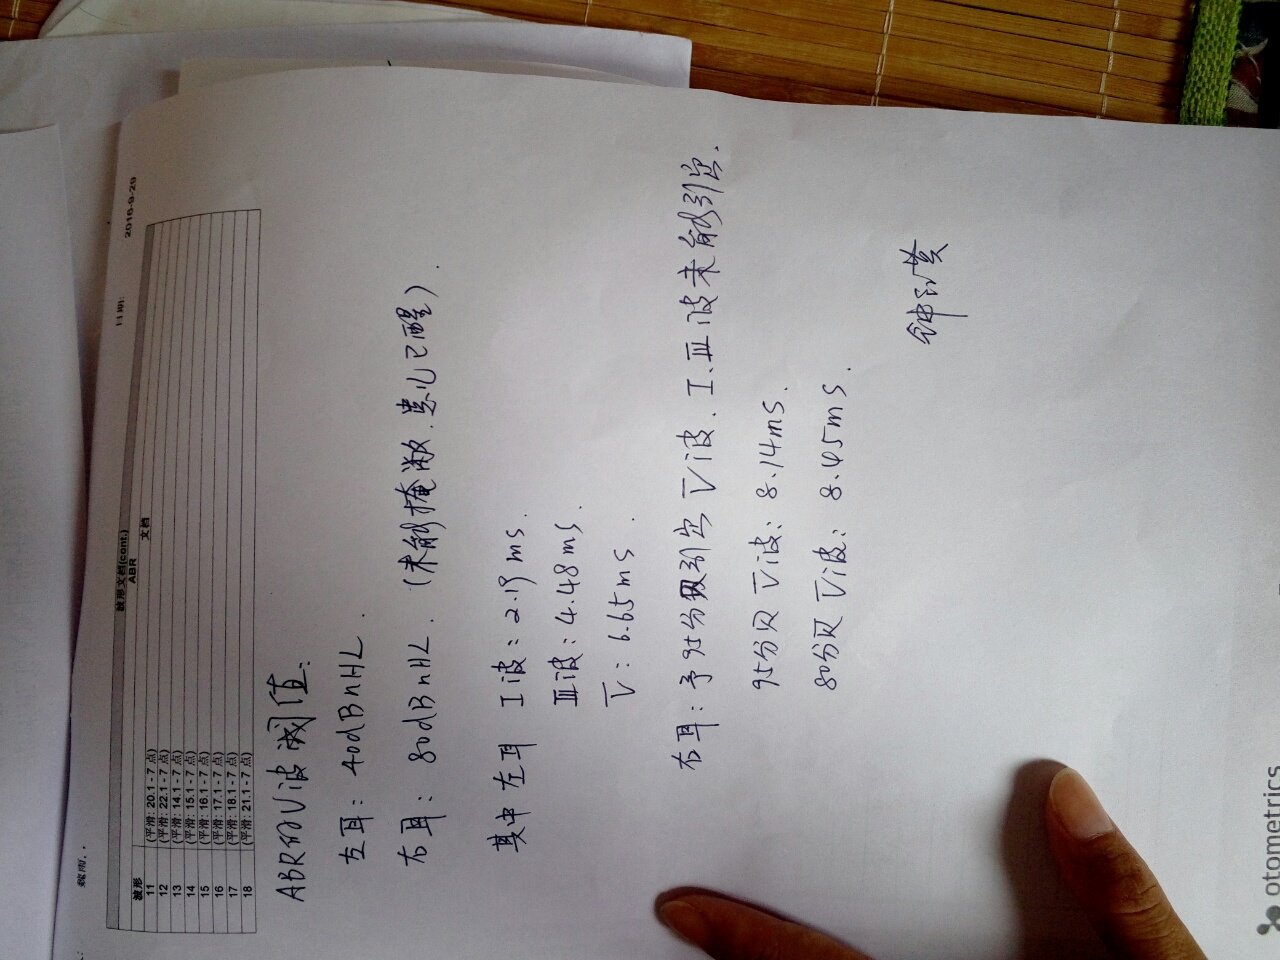 日期: 2016-9-29
波形文档(cont.)
ABR
波形 文档
11 (平滑: 20.1 - 7 点)
12 (平滑: 22.1 - 7 点)
13 (平滑: 14.1 - 7 点)
14 (平滑: 15.1 - 7 点)
15 (平滑: 16.1 - 7 点)
16 (平滑: 17.1 - 7 点)
17 (平滑: 18.1 - 7 点)
18 (平滑: 21.1 - 7 点)
ABR的V波阈值:
左耳: 40dBnHL.
右耳: 80dBnHL. (未能掩蔽.患儿已醒).
其中左耳 I波: 2.19ms.
III波: 4.48ms.
V: 6.65ms.
右耳: 予95分贝引出V波. I.III波未能引出.
95分贝V波: 8.14ms.
80分贝V波: 8.45ms.
otometrics